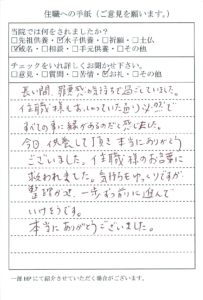 住職への手紙（ご意見を願います。）
当院では何をされましたか？
□先祖供養・☑水子供養・□祈願・□土仏
☑戒名・□相談・□手元供養・□その他
チェックをいれ詳しくお聞かせ下さい。
□意見・□質問・□苦情・☑お礼・□その他
長い間、罪悪感の気持ちで過ごしていました。
住職様もおっしゃっていた通り必然で
すべての事に縁があるのだと感じました。
今日、供養して頂き本当にありがとう
ございました。住職様のお言葉に
救われました。気持ちをゆっくりですが
整理がつき一歩ずつ前に進んで
いけそうです。
本当にありがとうございました。
一部HPにて紹介させていただく場合がございます。